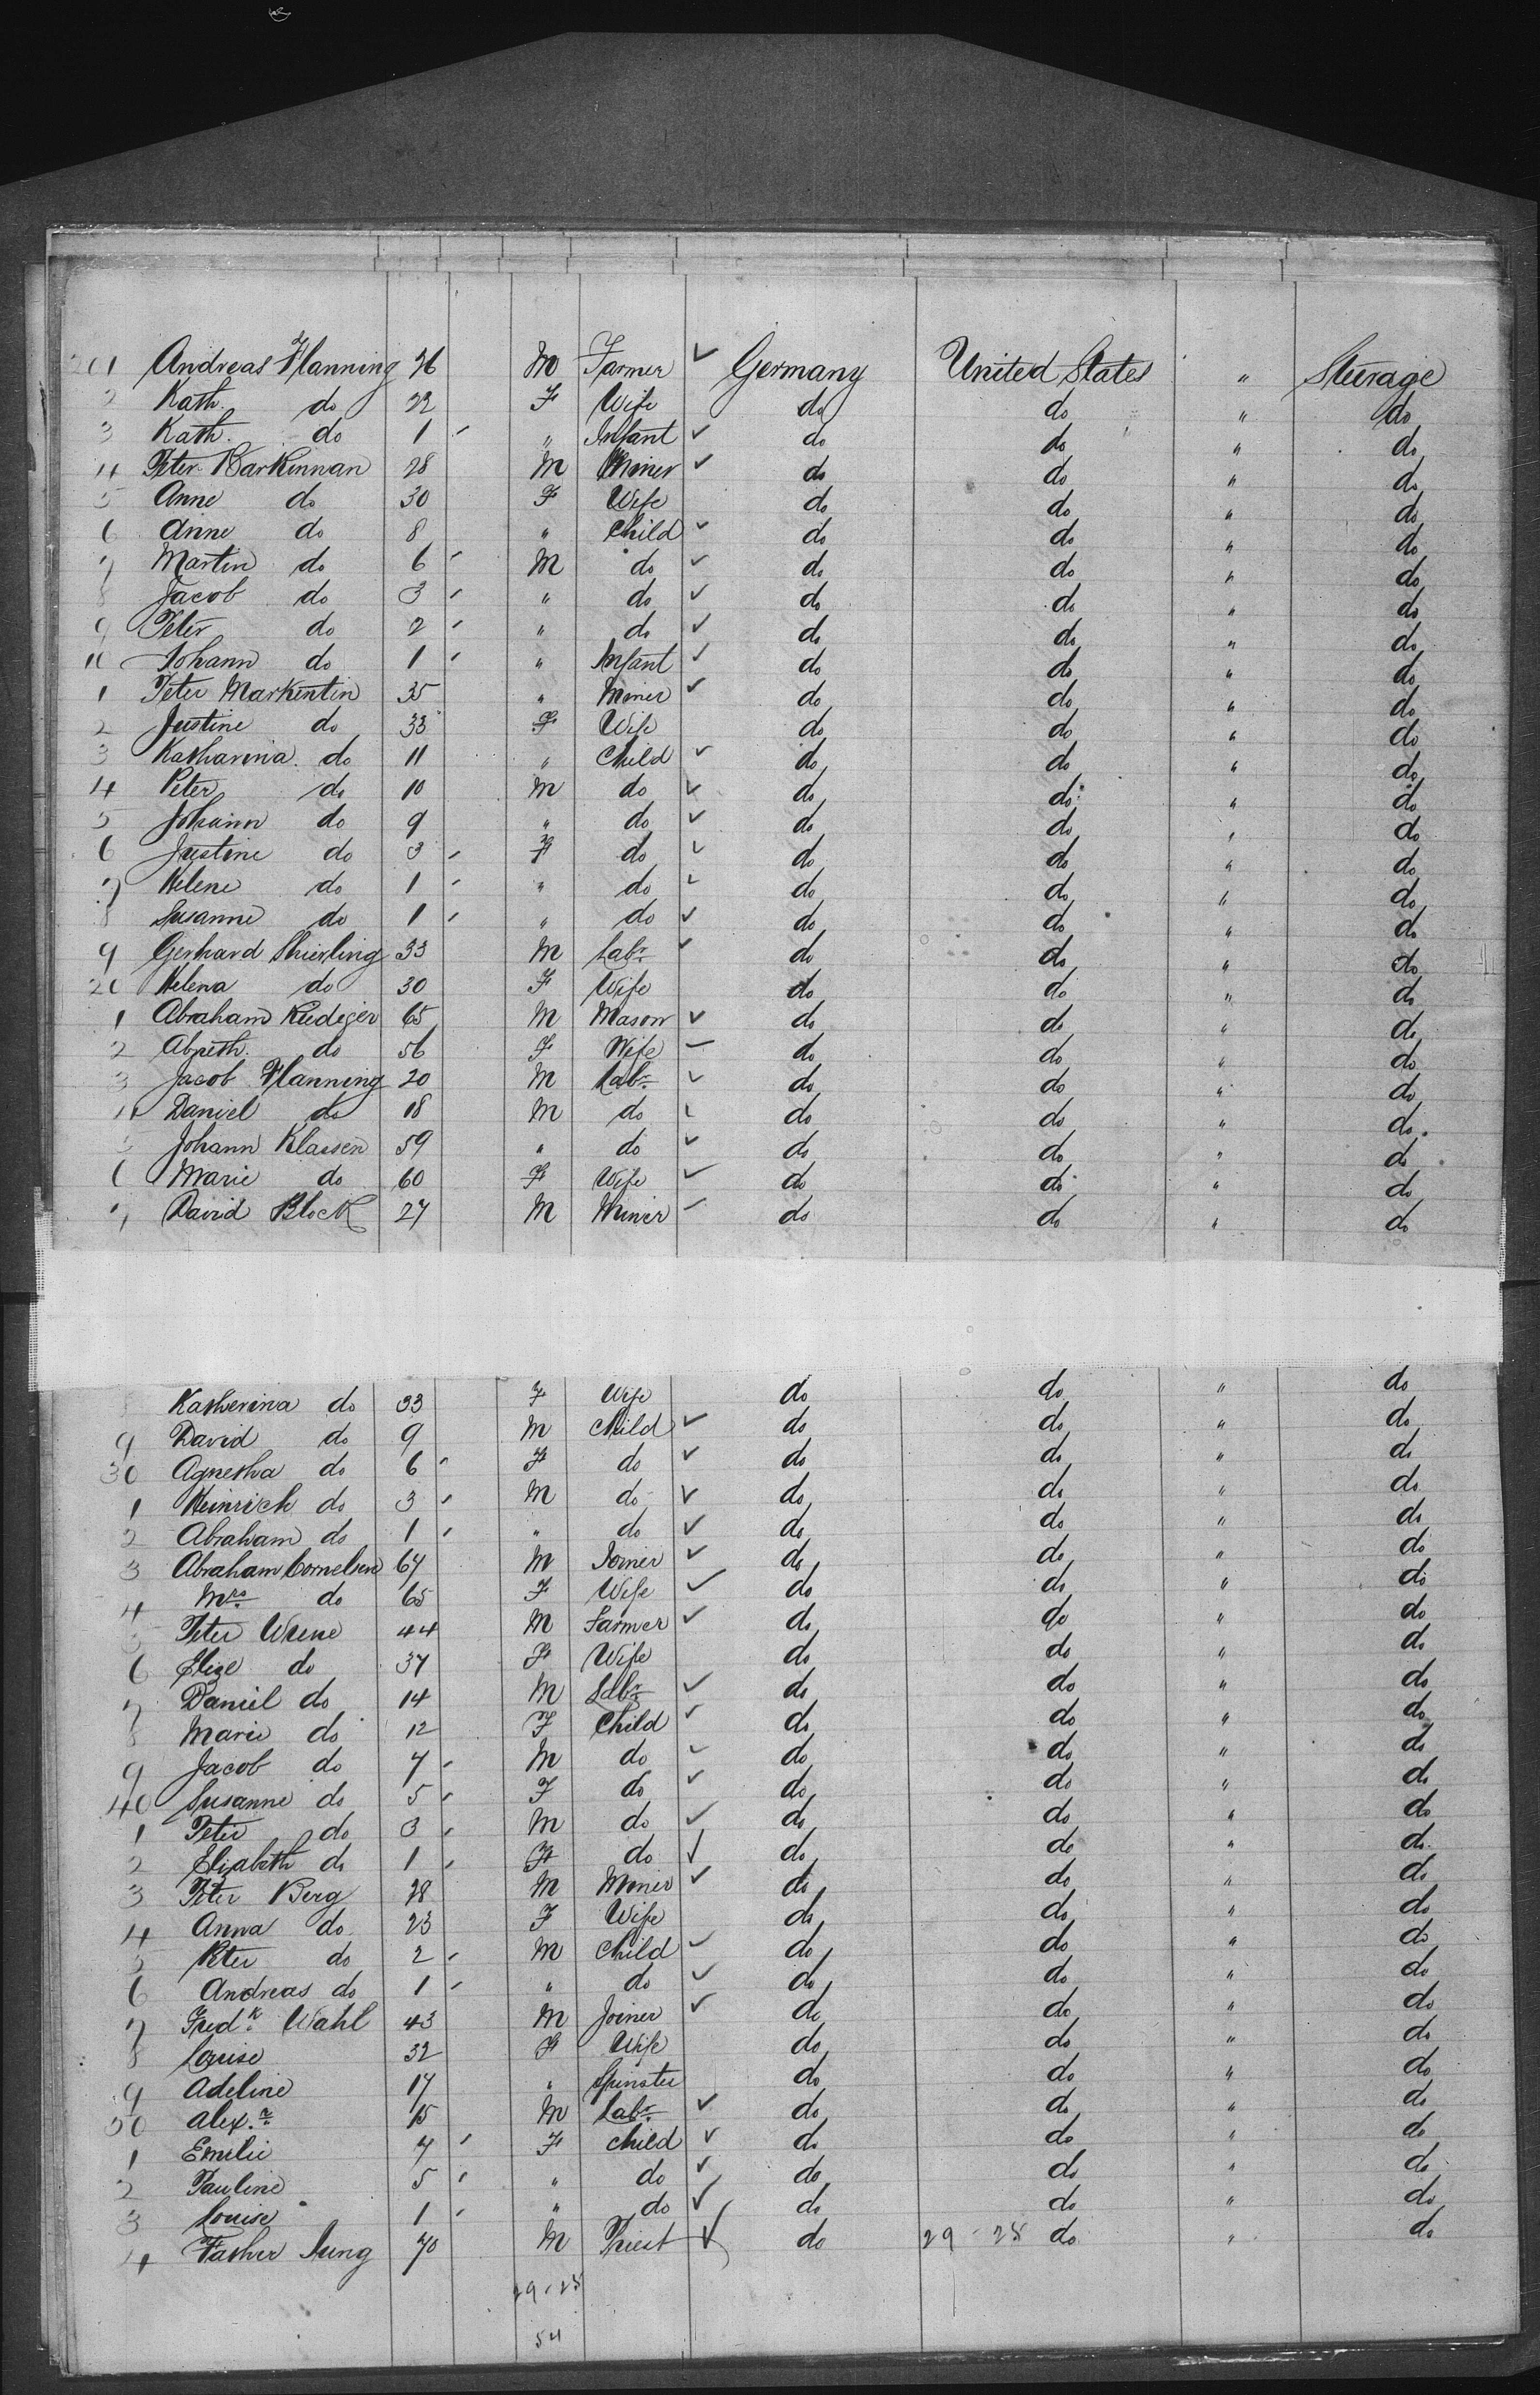 201 Andreas Flanning 26 M Farmer ✓ Germany United States " Steurage
2 Kath. do 22 F Wife do do " do
3 Kath. do 1 - " Infant ✓ do do " do
4 Peter Barkennan 28 M Miner ✓ do do " do
5 Anne do 30 F Wife do do " do
6 Anne do 8 " Child ✓ do do " do
7 Martin do 6 - M do ✓ do do " do
8 Jacob do 3 - " do ✓ do do " do
9 Peter do 2 - " do ✓ do do " do
10 Johann do 1 - " Infant ✓ do do " do
1 Peter Markentin 35 " Miner ✓ do do " do
2 Justine do 33 F Wife do do " do
3 Katharina do 11 " Child ✓ do do " do
4 Peter do 10 M do ✓ do do " do
5 Johann do 9 " do ✓ do do " do
6 Justine do 3 - F do ✓ do do " do
7 Helene do 1 - " do ✓ do do " do
8 Susanne do 1 - " do ✓ do do " do
9 Gerhard Shierling 33 M Labr ✓ do do " do
20 Helena do 30 F Wife do do " do
1 Abraham Rediger 65 M Mason ✓ do do " do
2 do 56 F Wife - do do " do
3 Jacob Flanning 20 M Labr ✓ do do " do
4 Daniel do 18 M do ✓ do do " do
5 Johann Klassen 59 " do ✓ do do " do
6 Marie do 60 F Wife ✓ do do " do
7 David Block 27 M Miner - do do " do
8 Katherina do 33 F Wife do do " do
9 David do 9 M Child ✓ do do " do
30 Agnesha do 6 - F do ✓ do do " do
1 Heinrich do 3 - M do ✓ do do " do
2 Abraham do 1 - " do ✓ do do " do
3 Abraham Cornelsen 67 M Joiner ✓ do do " do
4 Mrs do 65 F Wife ✓ do do " do
5 Peter Wiene 44 M Farmer ✓ do do " do
6 Elize do 37 F Wife do do " do
7 Daniel do 14 M Labr ✓ do do " do
8 Marie do 12 F Child ✓ do do " do
9 Jacob do 7 - M do ✓ do do " do
40 Susanne do 5 - F do ✓ do do " do
1 Peter do 3 - M do ✓ do do " do
2 Elizabeth do 1 - F do ✓ do do " do
3 Peter Berg 28 M Miner ✓ do do " do
4 Anna do 23 F Wife do do " do
5 Peter do 2 - M Child ✓ do do " do
6 Andreas do 1 - " do ✓ do do " do
7 Fredk Wahl 43 M Joiner ✓ do do " do
8 Louise 32 F Wife do do " do
9 Adeline 17 " Spinster do do " do
50 Alexr 15 M Labr ✓ do do " do
1 Emilie 7 - F Child ✓ do do " do
2 Pauline 5 - " do ✓ do do " do
3 Louise 1 - " do ✓ do do " do
4 Father Jung 70 M Priest ✓ do 29 - 25 do " do
29 - 25
54